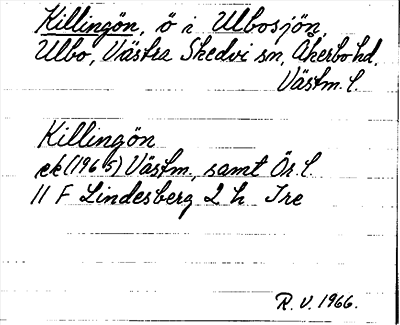 Killingön, ö i Ulbosjön,
Ulbo, Västra Skedvi sn, Åkerbo hd,
Västm. l.
Killingön
ek (1965) Västm., samt Ör. l.
11 F Lindesberg 2 h Tre
R. V. 1966.